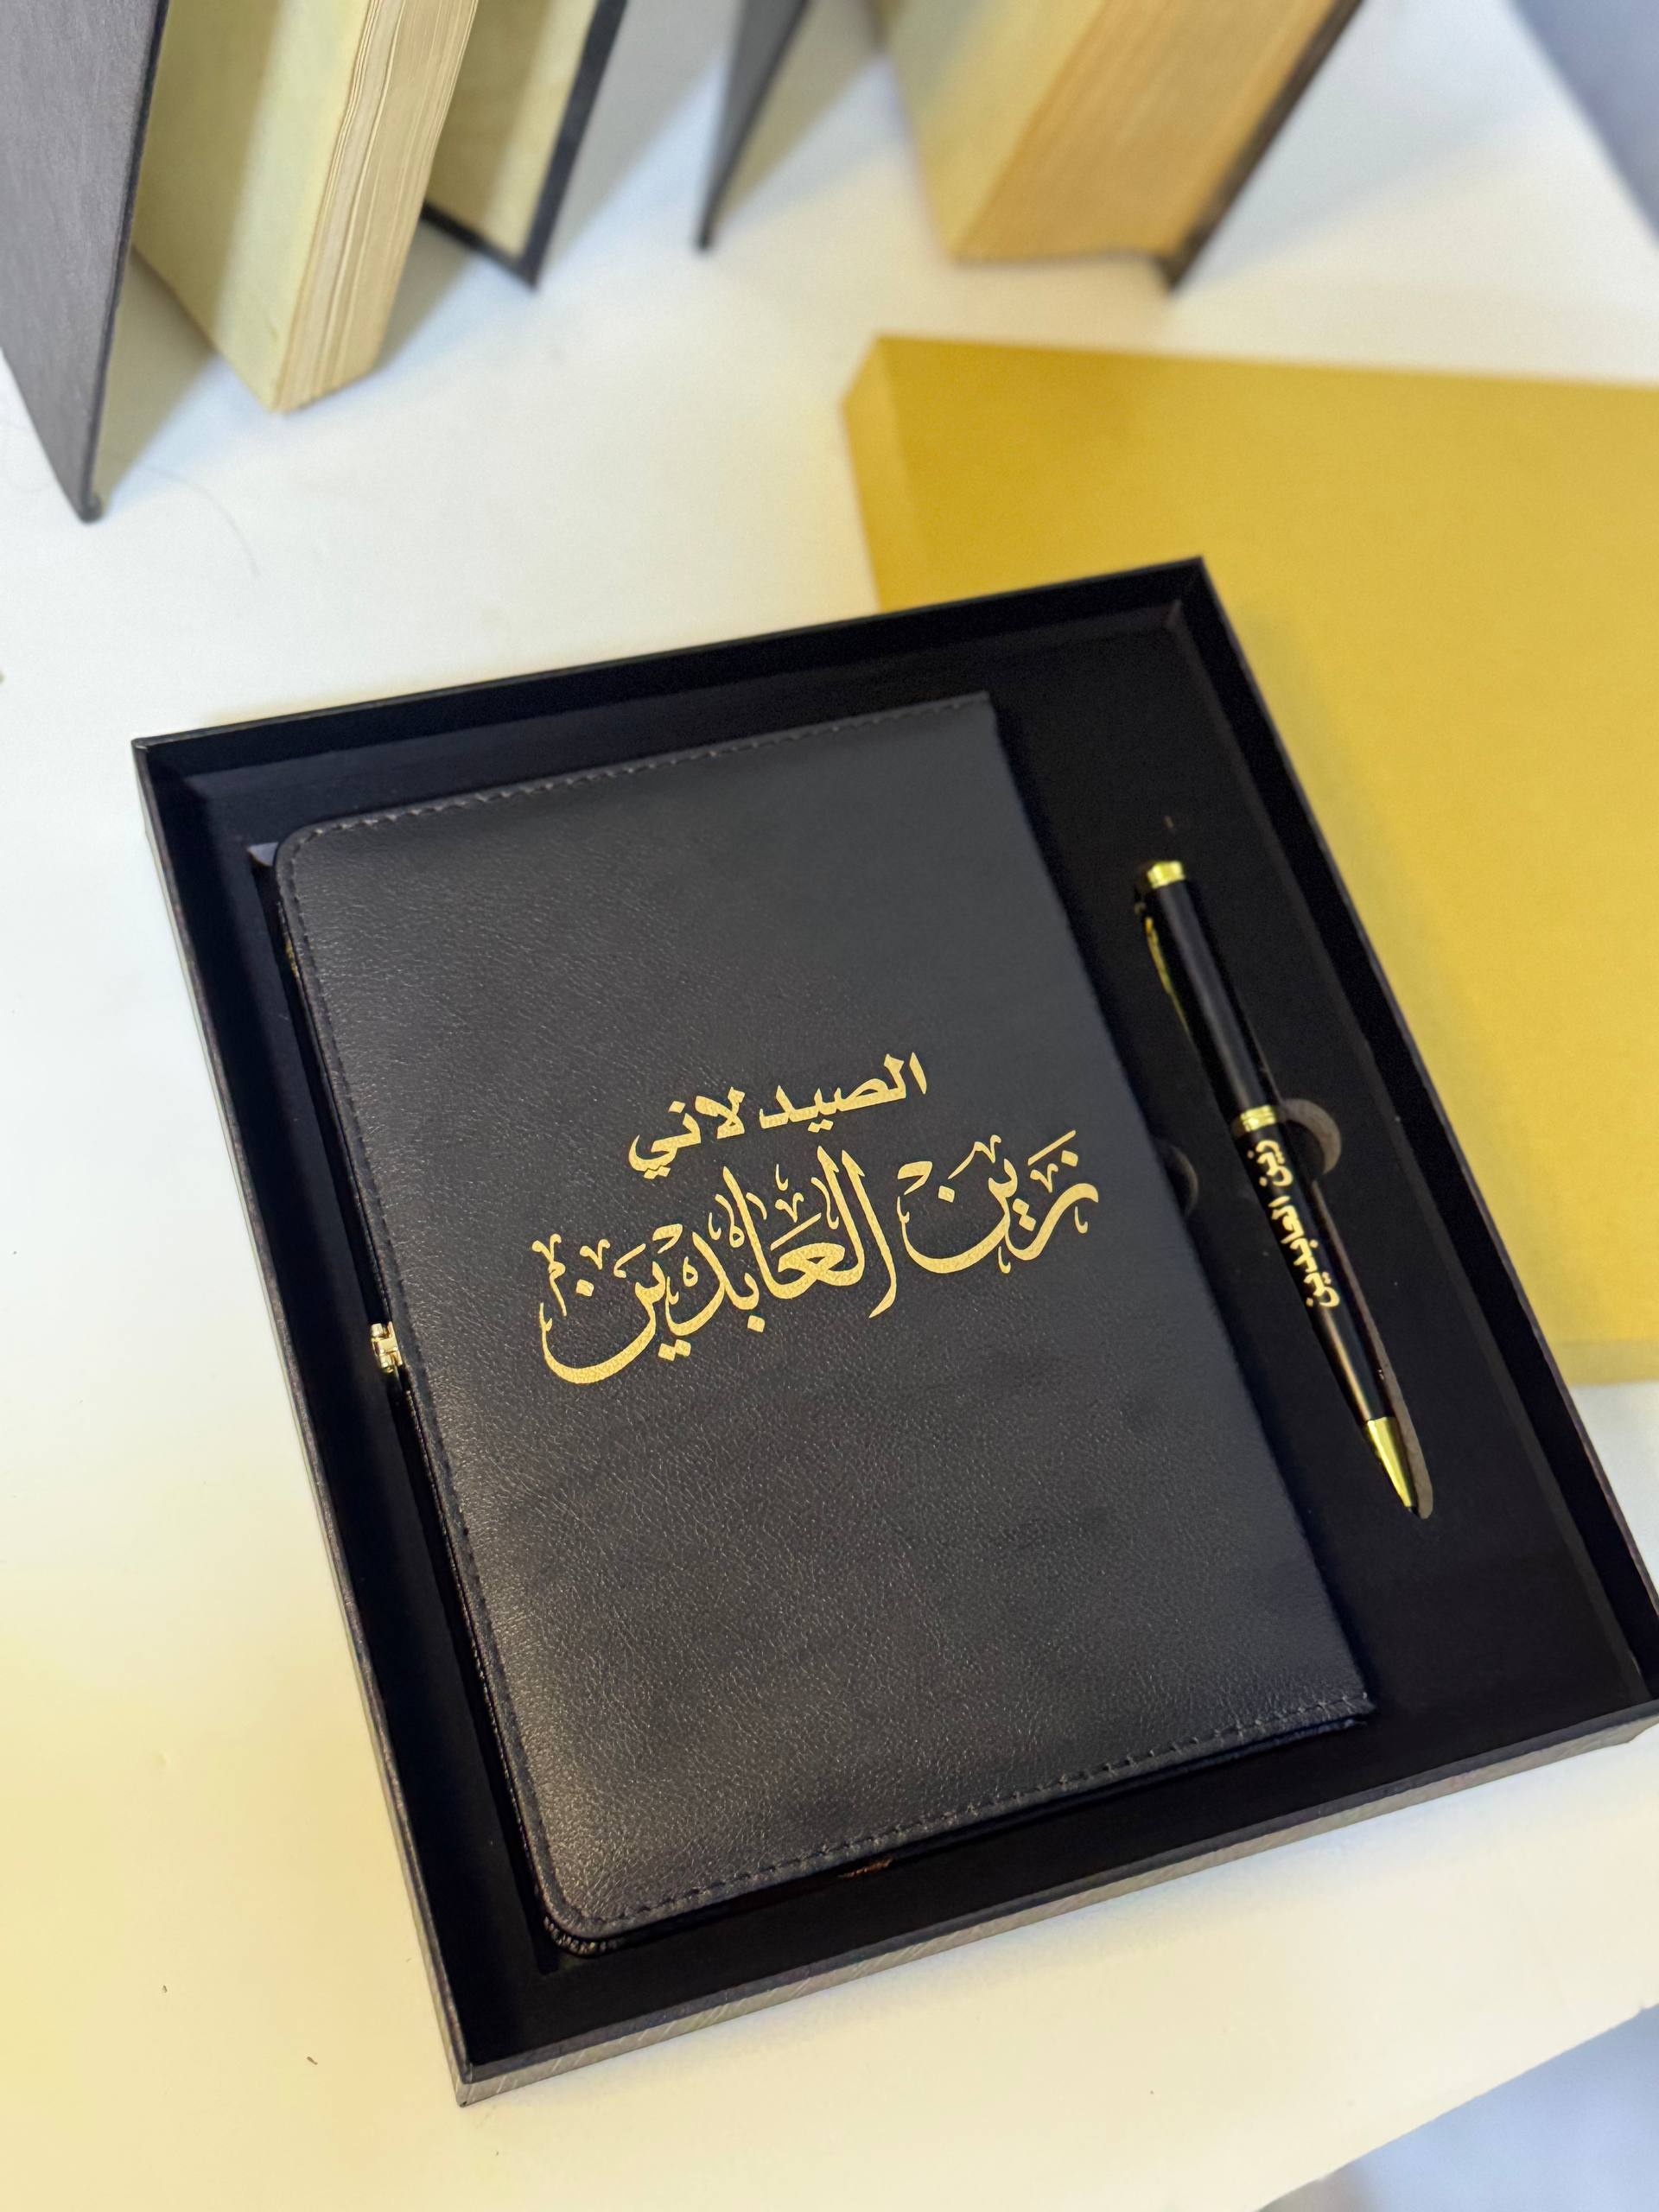 الصيدلاني
زَيِن العَابدِين
زين العابدين